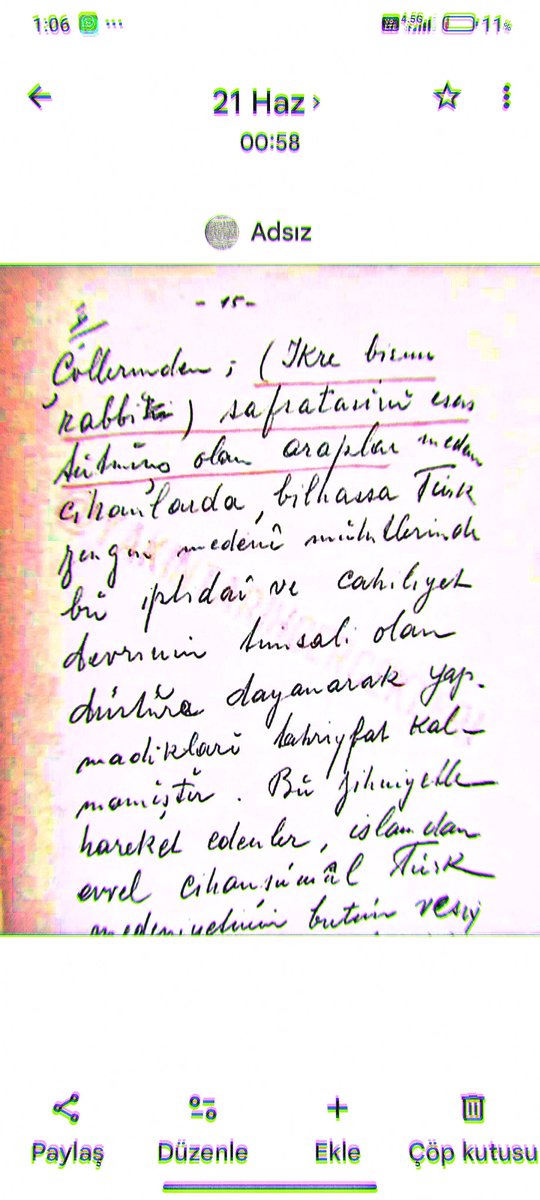 1:06
4.56
11%
21 Haz ›
00:58
Adsız
- 15 -
Çöllerinden ; (Ikre bismi
rabbi ) safsatasını esas
tutmuş olan araplar meden
cihanlarda, bilhassa Türk
zengin medenî mülklerinde
bu iptidaî ve cahiliyet
devrinin timsali olan
düstûra dayanarak yap-
madıkları tahrifat kal-
mamıştır . Bu zihniyetle
hareket edenler, islamdan
evvel cihanşümûl Türk
medeniyetinin butun vesi
Paylaş
Düzenle
Ekle
Çöp kutusu